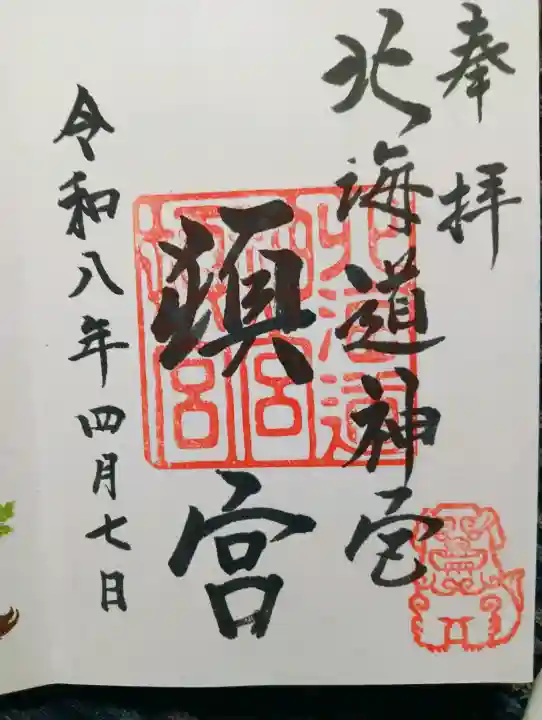 奉拝
北海道神宮
頓宮
北海道
神宮
頓宮
令和八年四月七日